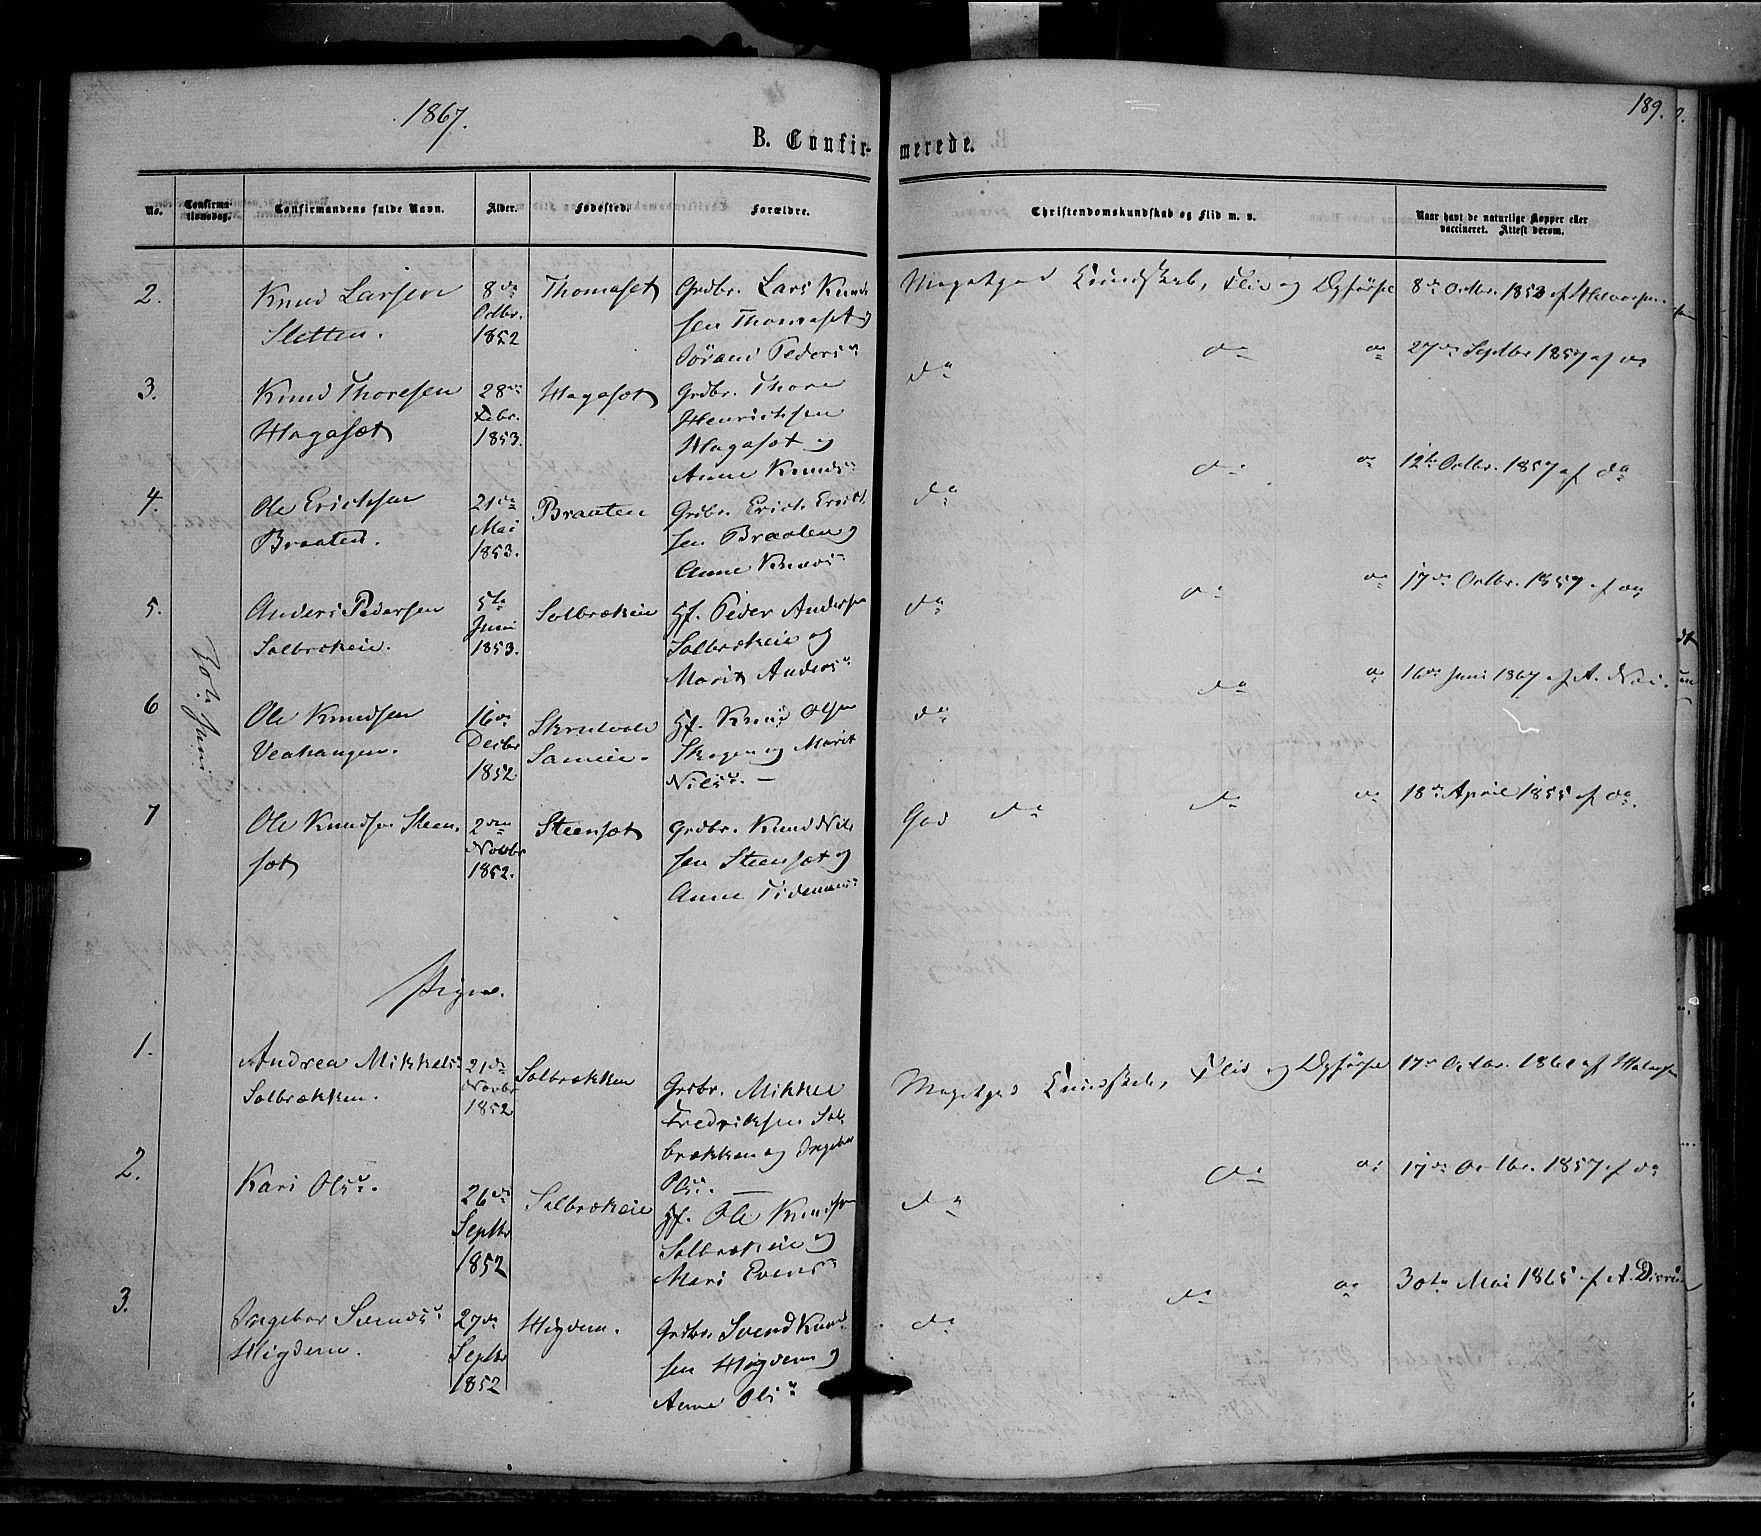 1867.
189.
B. Confir-
merede.
No.
Confirma-
tionsdag.
Confirmandens fulde Navn.
Alder.
Fødested.
Forældre.
Christendomskundskab og Flid m. v.
Naar havt de naturlige Kopper eller
vaccineret. Attest derom.
2.
Knud Larsen
Sletten.
8de
Octbr.
1852
Thomaset
Grdbr. Lars Knud
sen Thomaset og
Jørand Pedersd
Meget god Kundskab, Flid og Opførsel
8de Octbr. 1853 af Halvorsen
3.
Knud Thoresen
Hagaset
28de
Febr.
1853.
Hagaset
Grdbr. Thore
Henrichsen
Hagaset og
Anne Knudsd
do do do
27de Septbr 1857 af do
4.
Ole Erichsen
Braaten.
21de
Mai
1853.
Braaten
Grdbr. Erich Erich
sen Braaten og
Anne Knudsd
do do do
12te Octbr. 1857 af do
5.
Anders Pedersen
Solbrækeie.
5te
Juni
1853.
Solbrækeie
Hf. Peder Andersen
Solbrækeie og
Marit Andersd
do do do
17de Octbr. 1857 af do
6
Ole Knudsen
Veahaugen.
16de
Decbr
1852
Sameie.
Hf. Knud Olsen
Skogen og Marit
Nilsd. –
do do do
16de Juni 1867 af A.
7
Ole Knudsen Steen-
set
2den
Novbr
1852.
Steenset
Grdbr. Knud Nils
sen Steenset og
Anne Tidemansd
God do do do
18de April 1855 af do.
Juni
Piger.
1.
Andrea Mikkelsd
Solbrækken.
21de
Novbr
1852
Solbrækken
Grdbr. Mikkel
Fredriksen Sol-
brækken og Ingebor
Olsd.
Meget god Kundskab, Flid og Opførsel
17de Octbr. 1861 af Halvorsen
2.
Kari Olsd.
26de
Septbr
1852
Solbrækeie
Hf. Ole Knudsen
Solbrækeie og
Mari Evensd
do do do
17de Octbr. 1857 af do
3.
Ingebor Svendsd
Høgdem.
27de
Septbr
1852
Høgdem.
Grdbr. Svend Knud
sen Høgdem og
Anne Olsd
do do do
30te Mai 1865 af A.